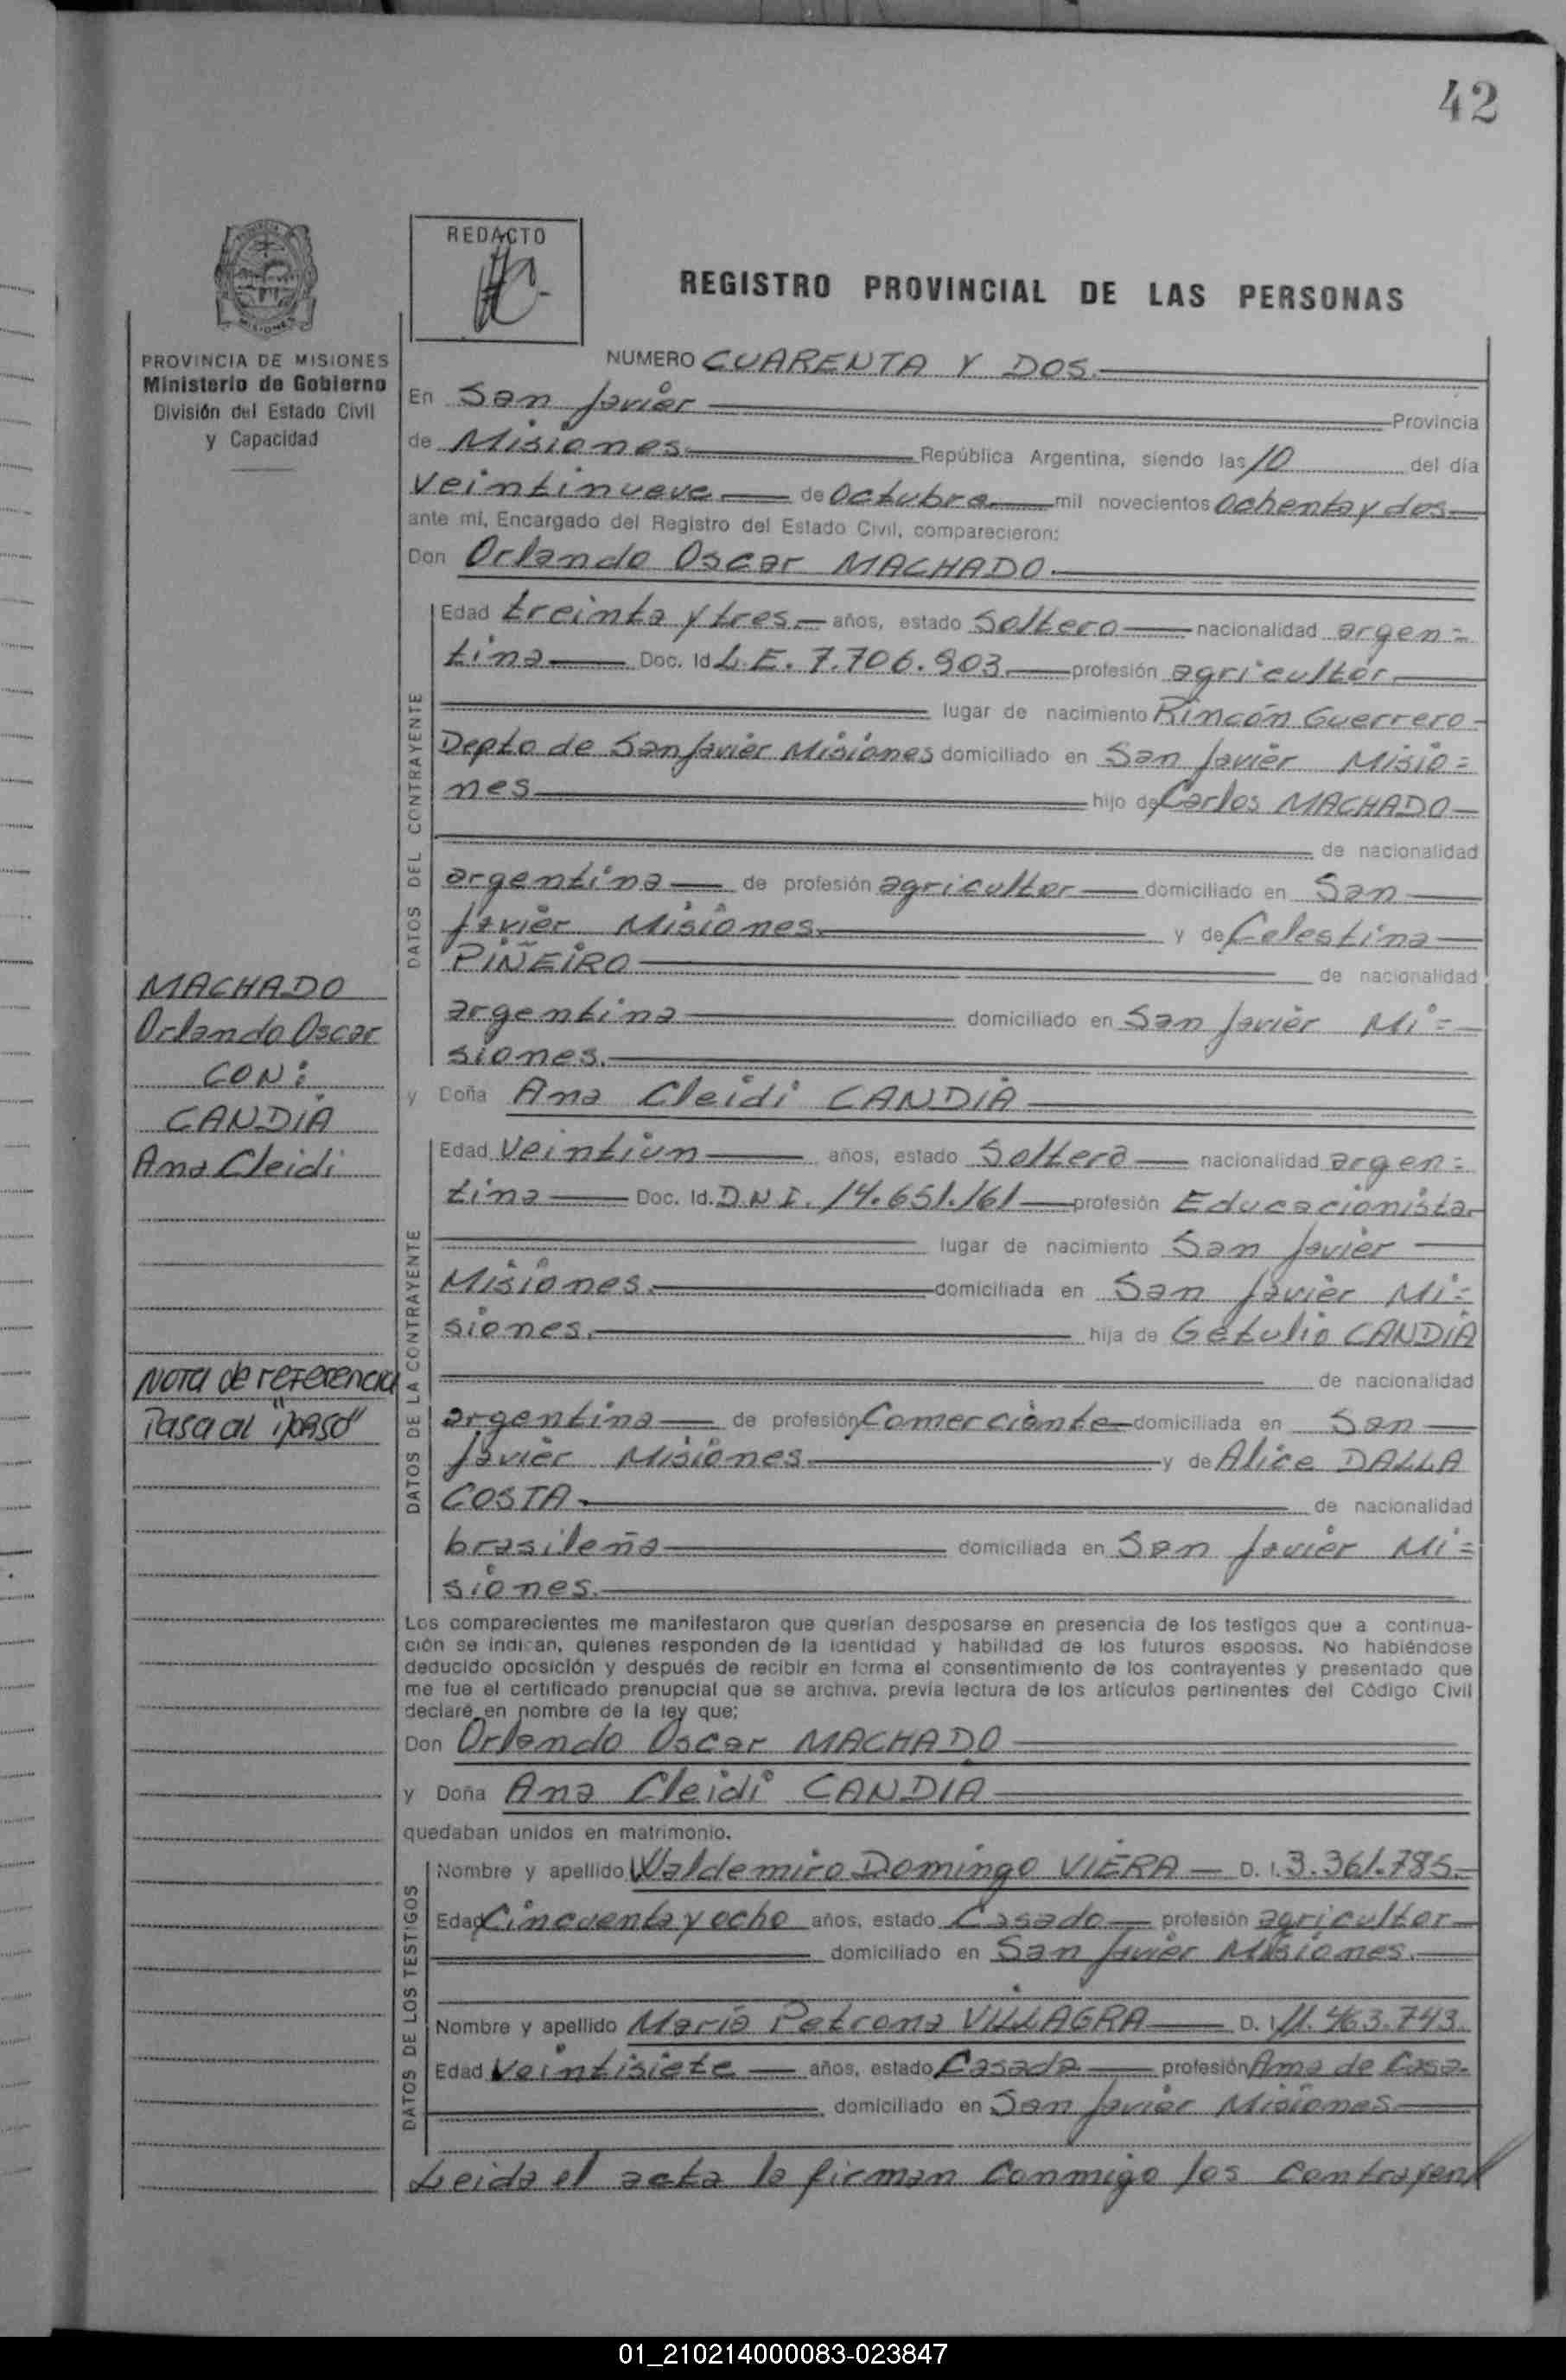 42
REDACTO
REGISTRO PROVINCIAL DE LAS PERSONAS
PROVINCIA DE MISIONES
Ministerio de Gobierno
División del Estado Civil
y Capacidad
NUMERO CUARENTA Y DOS.
En San Javier Provincia
de Misiones. República Argentina, siendo las 10 del día
veintinueve de octubre mil novecientos ochenta y dos
ante mí, Encargado del Registro del Estado Civil, comparecieron:
Don Orlando Oscar MACHADO.
DATOS DEL CONTRAYENTE
Edad treinta y tres. años, estado Soltero nacionalidad argen=
tina Doc. Id L.E. 7.706.903. profesión agricultor.
lugar de nacimiento Rincón Guerrero
Depto de San Javier Misiones domiciliado en San Javier Misio=
nes hijo de Carlos MACHADO
de nacionalidad
argentina de profesión agricultor domiciliado en San
Javier Misiones. y de Celestina
PIÑEIRO de nacionalidad
argentina domiciliado en San Javier Mi=
siones.
y Doña Ana Cleidi CANDIA
DATOS DE LA CONTRAYENTE
Edad veintiun años, estado Soltera nacionalidad argen=
tina Doc. Id. D.N.I. 14.651.161 profesión Educacionista.
lugar de nacimiento San Javier
Misiones. domiciliada en San Javier Mi=
siones. hija de Getulio CANDIA
de nacionalidad
argentina de profesión Comerciante domiciliada en San
Javier Misiones y de Alice DALLA
COSTA. de nacionalidad
brasileña domiciliada en San Javier Mi=
siones.
MACHADO
Orlando Oscar
CON:
CANDIA
Ana Cleidi
Nota de referencia
Pasa al "paso"
Los comparecientes me manifestaron que querían desposarse en presencia de los testigos que a continua-
ción se indican, quienes responden de la identidad y habilidad de los futuros esposos. No habiéndose
deducido oposición y después de recibir en forma el consentimiento de los contrayentes y presentado que
me fue el certificado prenupcial que se archiva, previa lectura de los artículos pertinentes del Código Civil
declaré en nombre de la ley que:
Don Orlando Oscar MACHADO
y Doña Ana Cleidi CANDIA
quedaban unidos en matrimonio.
DATOS DE LOS TESTIGOS
Nombre y apellido Waldemiro Domingo VIERA D. I. 3.361.785.
Edad Cincuenta y ocho años, estado Casado profesión agricultor
domiciliado en San Javier Misiones.
Nombre y apellido María Petrona VILLAGRA D. I. 11.463.743.
Edad Veintisiete años, estado Casada profesión Ama de Casa.
domiciliado en San Javier Misiones
Leida el acta la firman conmigo los contrayent
01_210214000083-023847